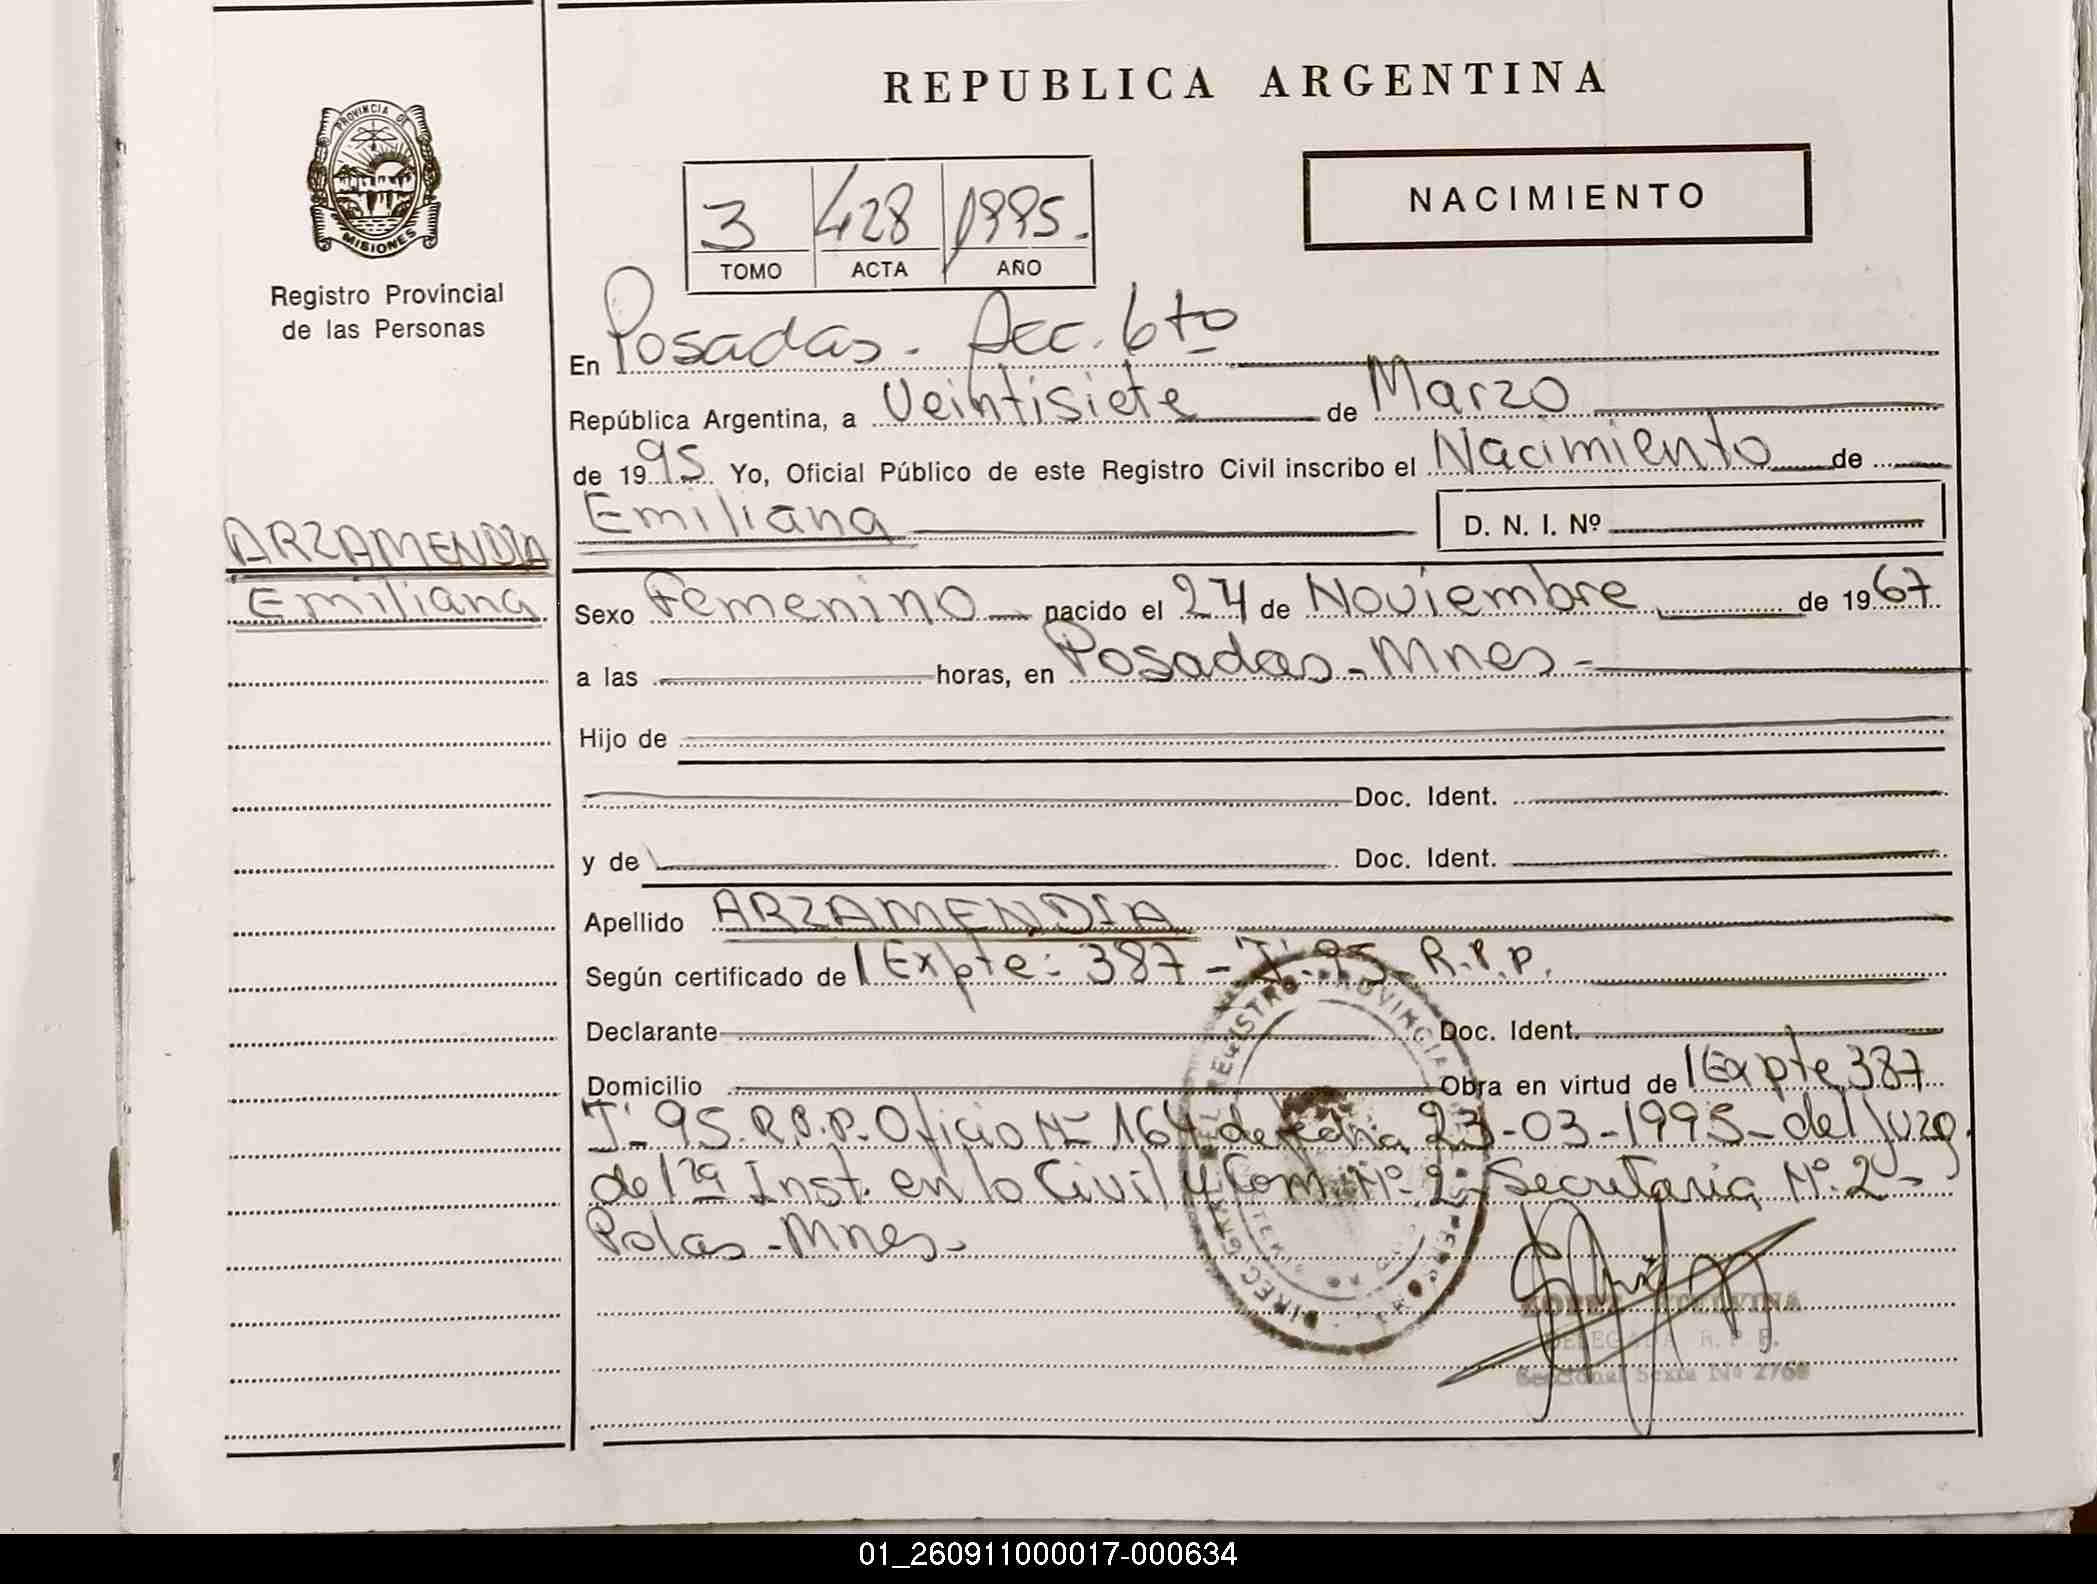 REPUBLICA ARGENTINA
PROVINCIA DE
MISIONES
Registro Provincial
de las Personas
NACIMIENTO
3 428 1995.
TOMO ACTA AÑO
En Posadas - Secc. 6to
República Argentina, a Veintisiete de Marzo
de 1995 Yo, Oficial Público de este Registro Civil inscribo el Nacimiento de
Emiliana D. N. I. Nº
ARZAMENDIA
Emiliana
Sexo Femenino nacido el 24 de Noviembre de 1967.
a las horas, en Posadas - Mnes -
Hijo de
Doc. Ident.
y de Doc. Ident.
Apellido ARZAMENDIA
Según certificado de Expte: 387 - "J" 95 - R.P.P.
Declarante Doc. Ident.
Domicilio Obra en virtud de Expte 387
"J" - 95. R.P.P. Oficio Nº 164 de fecha 23-03-1995 - del Juzg.
de 1ra Inst. en lo Civil y Com. Nº 2 - Secretaria Nº 2 -
Pdas - Mnes -
REGISTRO PROVINCIAL
DELEGADA R. P. P.
Seccional Sexta Nº 2768
01_260911000017-000634